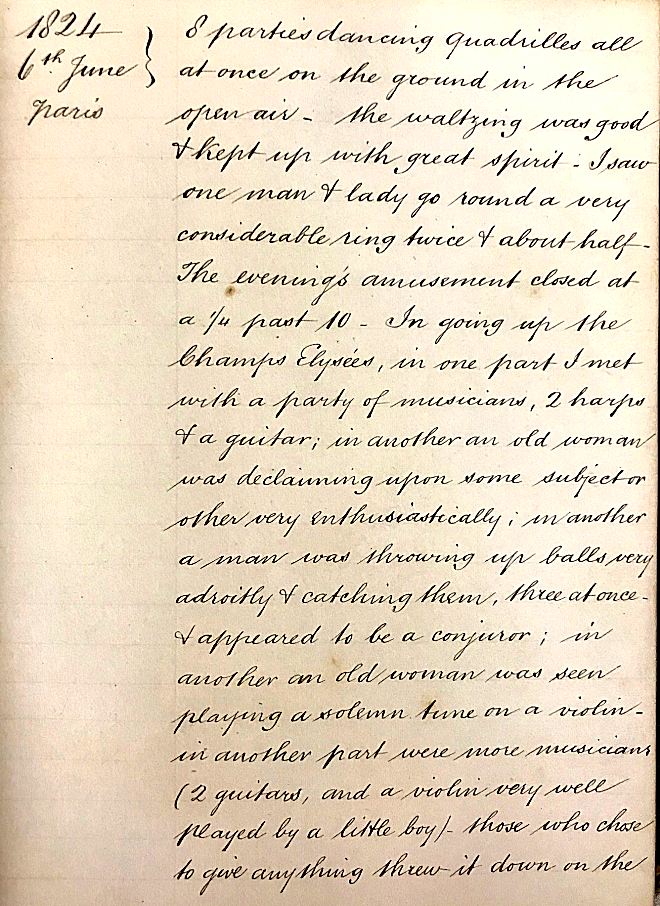 1824
6th June
Paris
8 parties dancing quadrilles all
at once on the ground in the
open air - the waltzing was good
& kept up with great spirit - I saw
one man & lady go round a very
considerable ring twice & about half -
The evening's amusement closed at
a 1/4 past 10 - In going up the
Champs Elysées, in one part I met
with a party of musicians, 2 harps
& a guitar; in another an old woman
was declaiming upon some subject or
other very enthusiastically; in another
a man was throwing up balls very
adroitly & catching them, three at once -
& appeared to be a conjuror; in
another an old woman was seen
playing a solemn tune on a violin -
in another part were more musicians
(2 guitars, and a violin very well
played by a little boy) - those who chose
to give anything threw it down on the